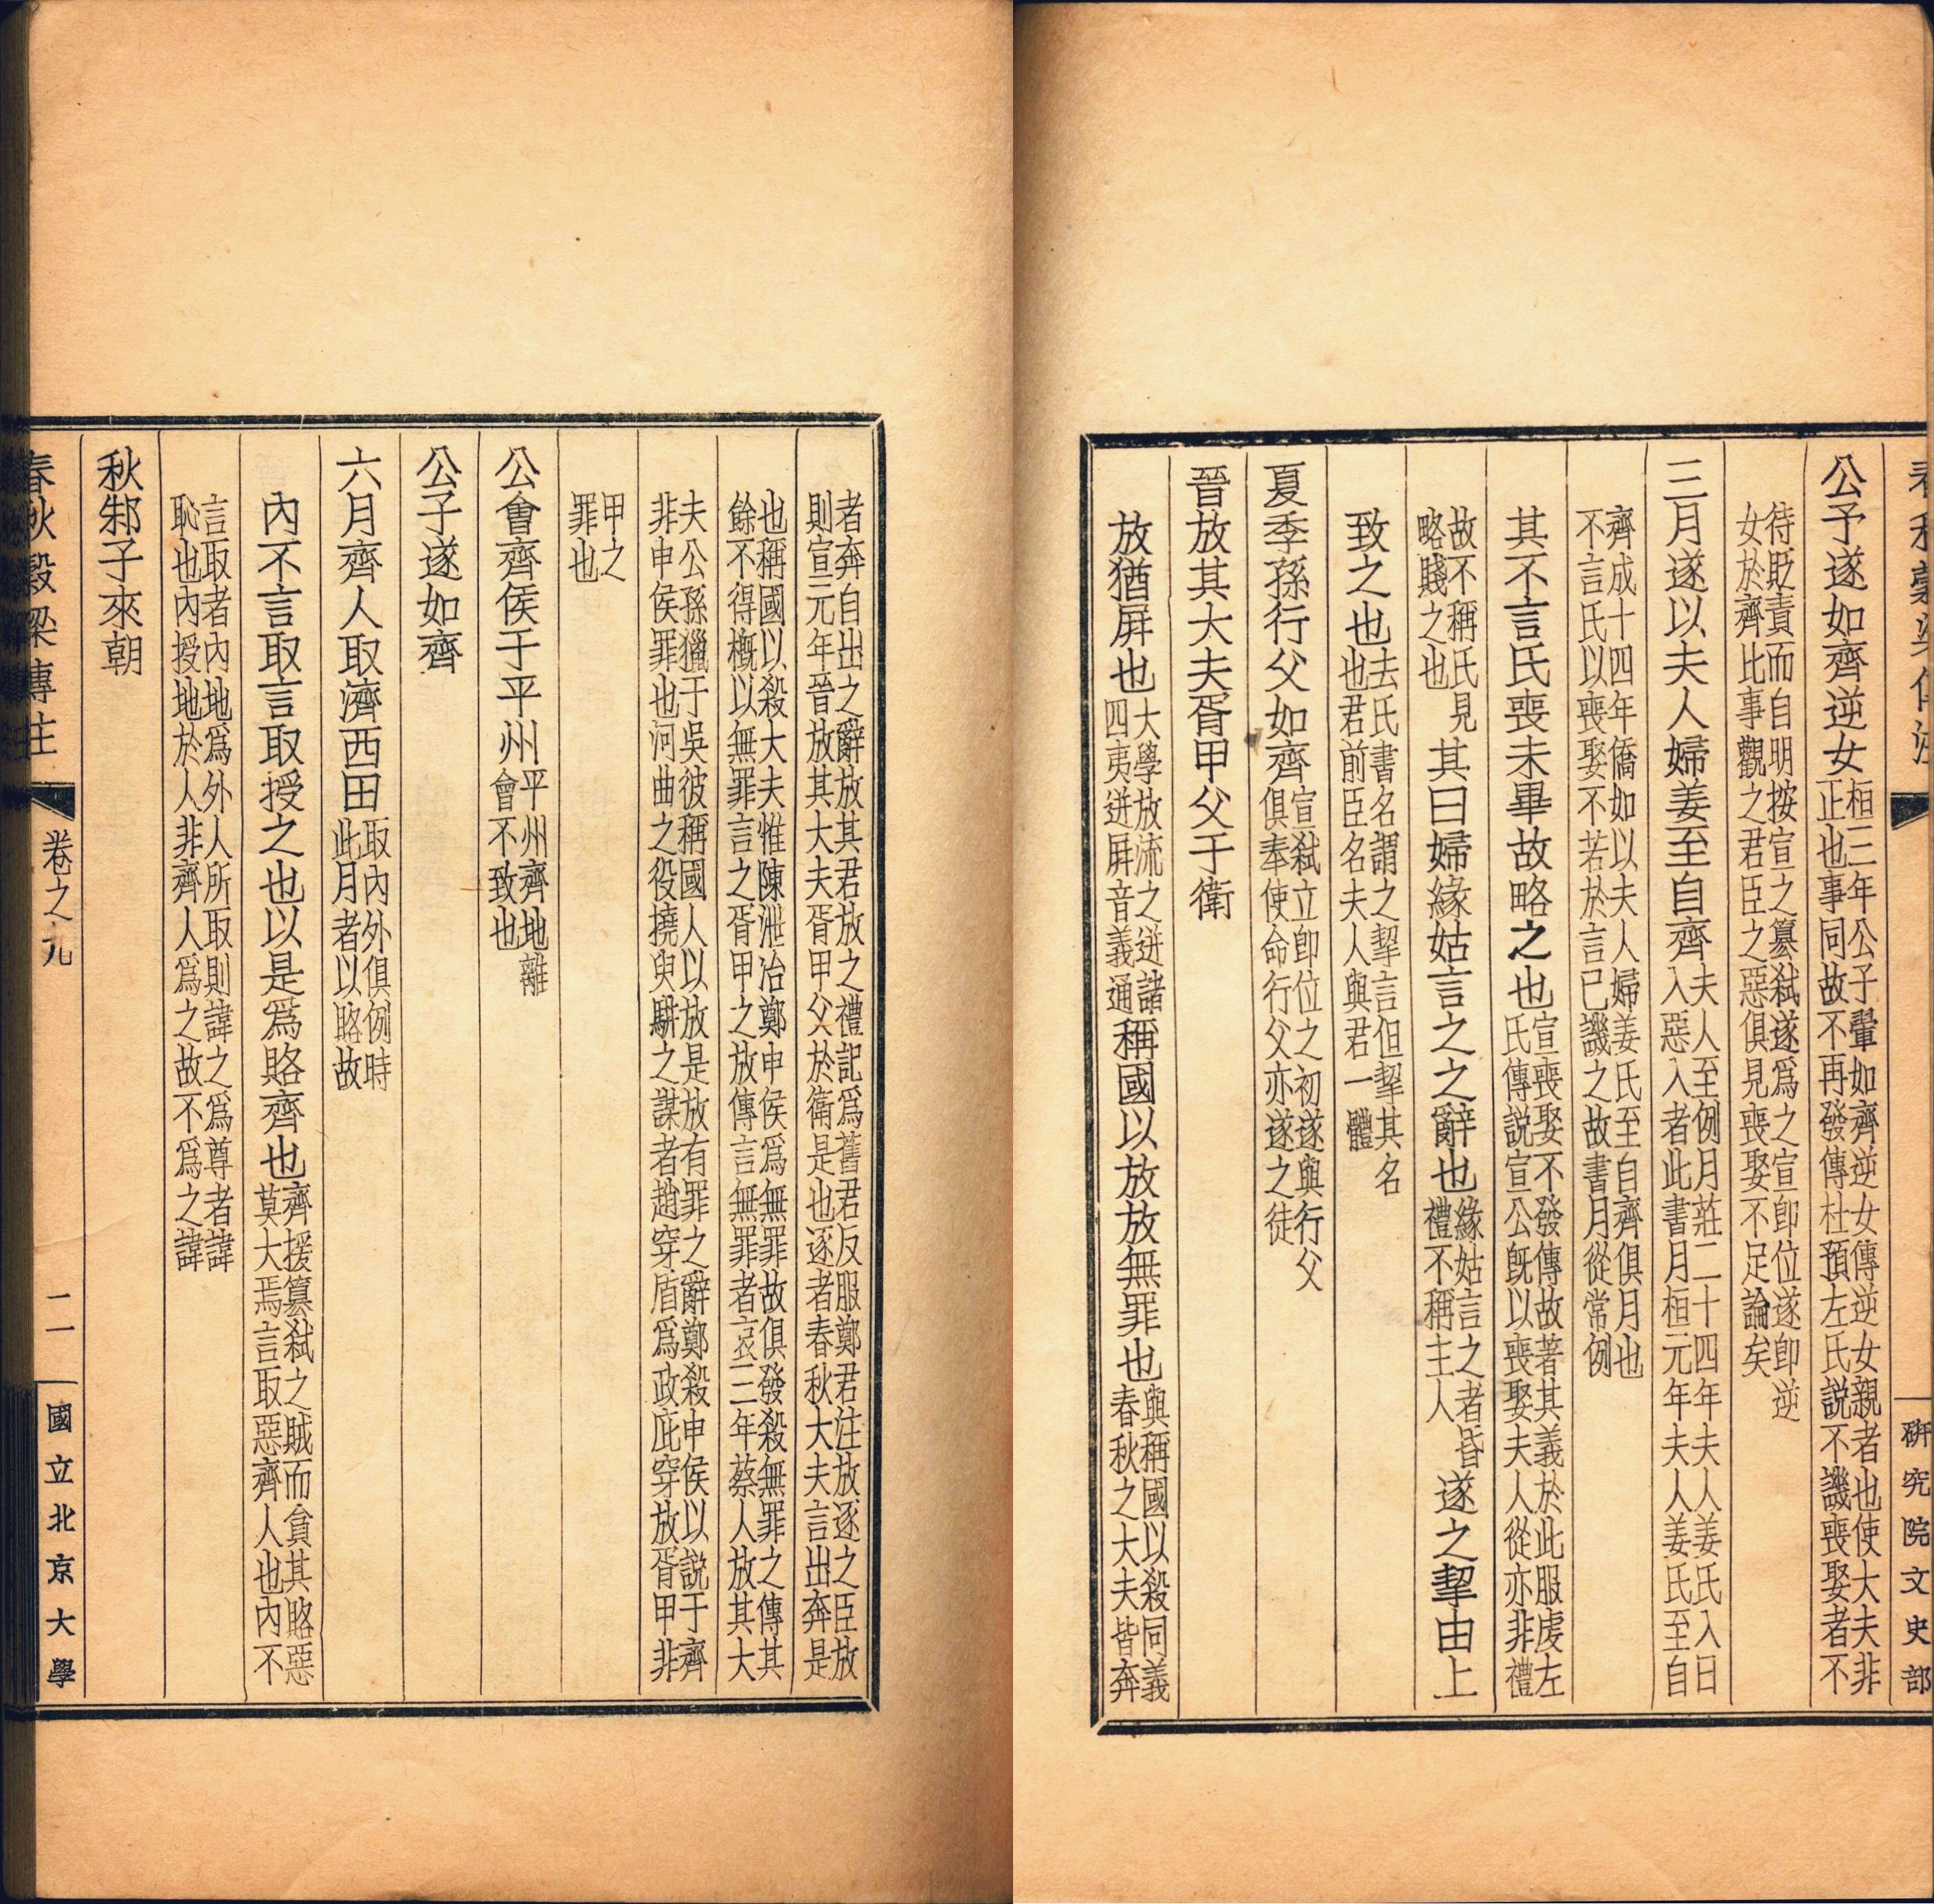 研究院文史部
公子遂如齊逆女桓三年公子翬如齊逆女傳逆女親者也使大夫非正也事同故不再發傳杜預左氏説不譏喪娶者不
待貶責而自明按宣之簒弑遂爲之宣卽位遂卽逆女於齊比事觀之君臣之惡俱見喪娶不足論矣
三月遂以夫人婦姜至自齊夫人至例月莊二十四年夫人姜氏入日入惡入者此書月桓元年夫人姜氏至自
齊成十四年僑如以夫人婦姜氏至自齊俱月也不言氏以喪娶不若於言已譏之故書月從常例
其不言氏喪未畢故略之也宣喪娶不發傳故著其義於此服虔左氏傳説宣公旣以喪娶夫人從亦非禮
故不稱氏見略賤之也其曰婦緣姑言之之辭也緣姑言之者昏禮不稱主人遂之挈由上
致之也去氏書名謂之挈言但挈其名也君前臣名夫人與君一體
夏季孫行父如齊宣弑立卽位之初遂與行父俱奉使命行父亦遂之徒
晉放其大夫胥甲父于衛
放猶屛也大學放流之迸諸四夷迸屛音義通稱國以放放無罪也與稱國以殺同義春秋之大夫皆奔
者奔自出之辭放其君放之禮記爲舊君反服鄭君注放逐之臣放則宣元年晉放其大夫胥甲父於衛是也逐者春秋大夫言出奔是
也稱國以殺大夫惟陳泄冶鄭申侯爲無罪故俱發殺無罪之傳其餘不得槪以無罪言之胥甲之放傳言無罪者哀三年蔡人放其大
夫公孫獵于吳彼稱國人以放是放有罪之辭鄭殺申侯以説于齊非申侯罪也河曲之役撓臾駢之謀者趙穿盾爲政庇穿放胥甲非
甲之罪也
公會齊侯于平州平州齊地離會不致也
公子遂如齊
六月齊人取濟西田取內外俱例時此月者以賂故
內不言取言取授之也以是爲賂齊也齊援簒弑之賊而貪其賂惡莫大焉言取惡齊人也內不
言取者內地爲外人所取則諱之爲尊者諱恥也內授地於人非齊人爲之故不爲之諱
秋邾子來朝
春秋穀梁傳注 卷之九 二一 國立北京大學